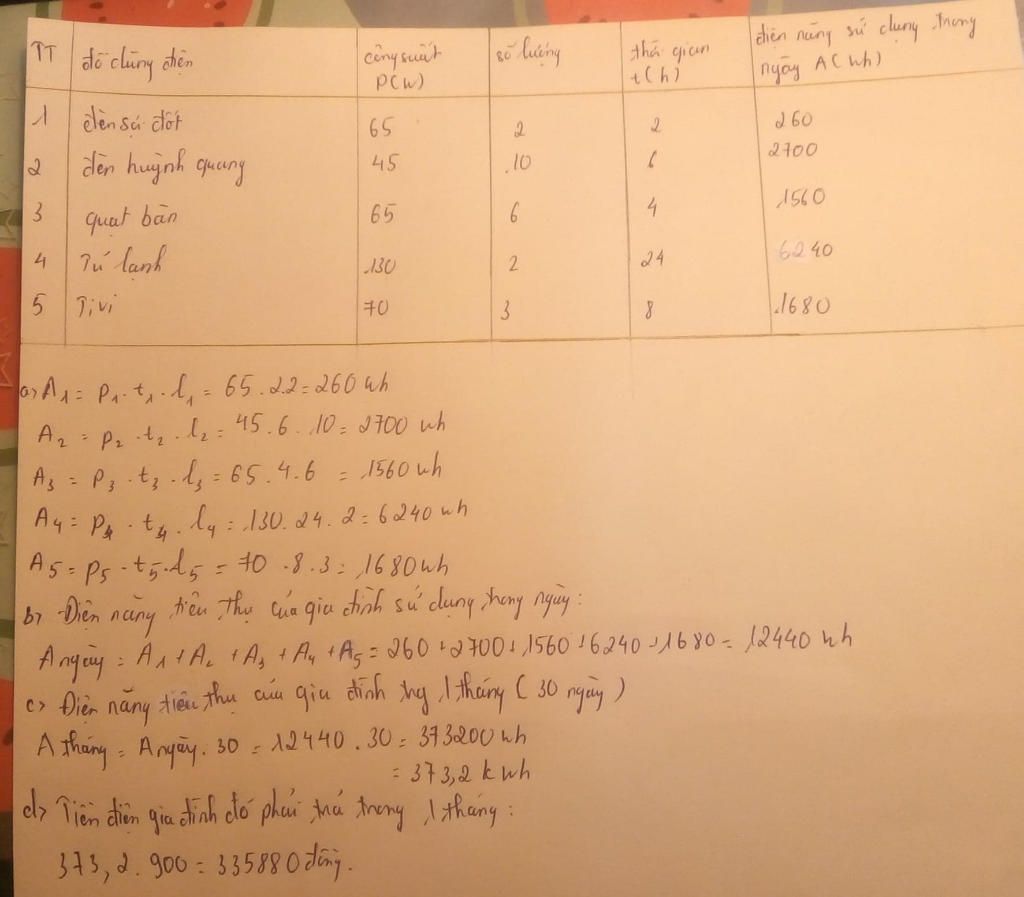 TT đồ dùng điện công suất P(W) số lượng thời gian t(h) điện năng sử dụng trong ngày A(Wh)
1 đèn sợi đốt 65 2 2 260
2 đèn huỳnh quang 45 10 6 2700
3 quạt bàn 65 6 4 1560
4 Tủ lạnh 130 2 24 6240
5 Tivi 70 3 8 1680
a> A1 = P1 . t1 . l1 = 65 . 2.2 = 260 Wh
A2 = P2 . t2 . l2 = 45 . 6 . 10 = 2700 Wh
A3 = P3 . t3 . l3 = 65 . 4 . 6 = 1560 Wh
A4 = P4 . t4 . l4 = 130 . 24 . 2 = 6240 Wh
A5 = P5 . t5 . l5 = 70 . 8 . 3 = 1680 Wh
b> Điện năng tiêu thụ của gia đình sử dụng trong ngày :
A ngày = A1 + A2 + A3 + A4 + A5 = 260 + 2700 + 1560 + 6240 + 1680 = 12440 Wh
c> Điện năng tiêu thụ của gia đình trg 1 tháng ( 30 ngày )
A tháng = A ngày . 30 = 12440 . 30 = 373200 Wh
= 373,2 kWh
d> Tiền điện gia đình đó phải trả trong 1 tháng :
373,2 . 900 = 335880 đồng.